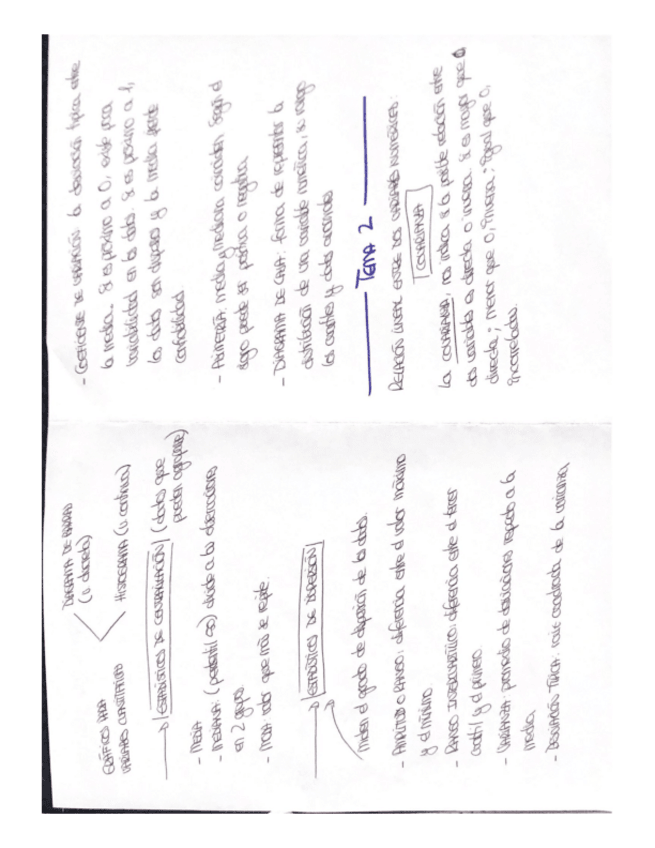 GRÁFICOS PARA
VARIABLES CUANTITATIVAS
DIAGRAMA DE BARRAS
(v. discreta)
HISTOGRAMA (v. continua)
→ ESTADÍSTICOS DE CENTRALIZACIÓN (datos que
pueden agruparse)
- MEDIA
- MEDIANA: (percentil 50) divide a las observaciones
en 2 grupos.
- MODA: valor que más se repite.
→ ESTADÍSTICOS DE DISPERSIÓN
Miden el grado de dispersión de los datos.
- AMPLITUD O RANGO: diferencia entre el valor máximo
y el mínimo.
- RANGO INTERCUARTÍLICO: diferencia entre el tercer
cuartil y el primero.
- VARIANZA: promedio de desviaciones respecto a la
media.
- DESVIACIÓN TÍPICA: raíz cuadrada de la varianza.
- COEFICIENTE DE VARIACIÓN: la desviación típica entre
la media. Si es próximo a 0, existe poca
variabilidad en los datos. Si es próximo a 1,
los datos son dispersos y la media pierde
confiabilidad.
- ASIMETRÍA: media y mediana coinciden. Según el
signo puede ser positiva o negativa.
- DIAGRAMA DE CAJA: forma de representar la
distribución de una variable numérica, su rango
los cuartiles y datos
TEMA 2
RELACIÓN LINEAL ENTRE DOS VARIABLES NUMÉRICAS:
COVARIANZA
La COVARIANZA, nos indica si la posible relación entre
dos variables es directa o inversa. Si es mayor que 0
directa; menor que 0, inversa; igual que 0,
incorreladas.